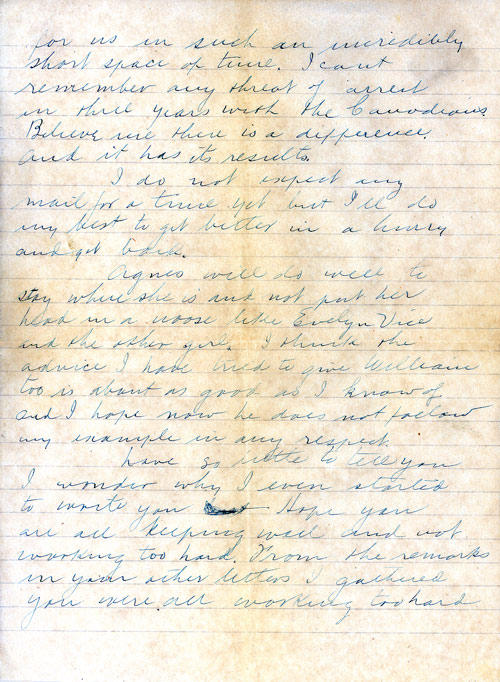 for us in such an incredibly
short space of time. I cant
remember any threat of arrest
in three years with the Canadians.
Believe me there is a difference.
and it has its results.
I do not expect any
mail for a time yet but I'll do
my best to get better in a hurry
and get back.
Agnes will do well to
stay where she is and not put her
head in a noose like Evelyn Vice
and the other girl. I think the
advice I have tried to give William
too is about as good as I know of
and I hope now he does not follow
my example in any respect.
have so little to tell you
I wonder why I even started
to write you Hope you
are all keeping well and not
working too hard. From the remarks
in your other letters I gathered
you were all working too hard